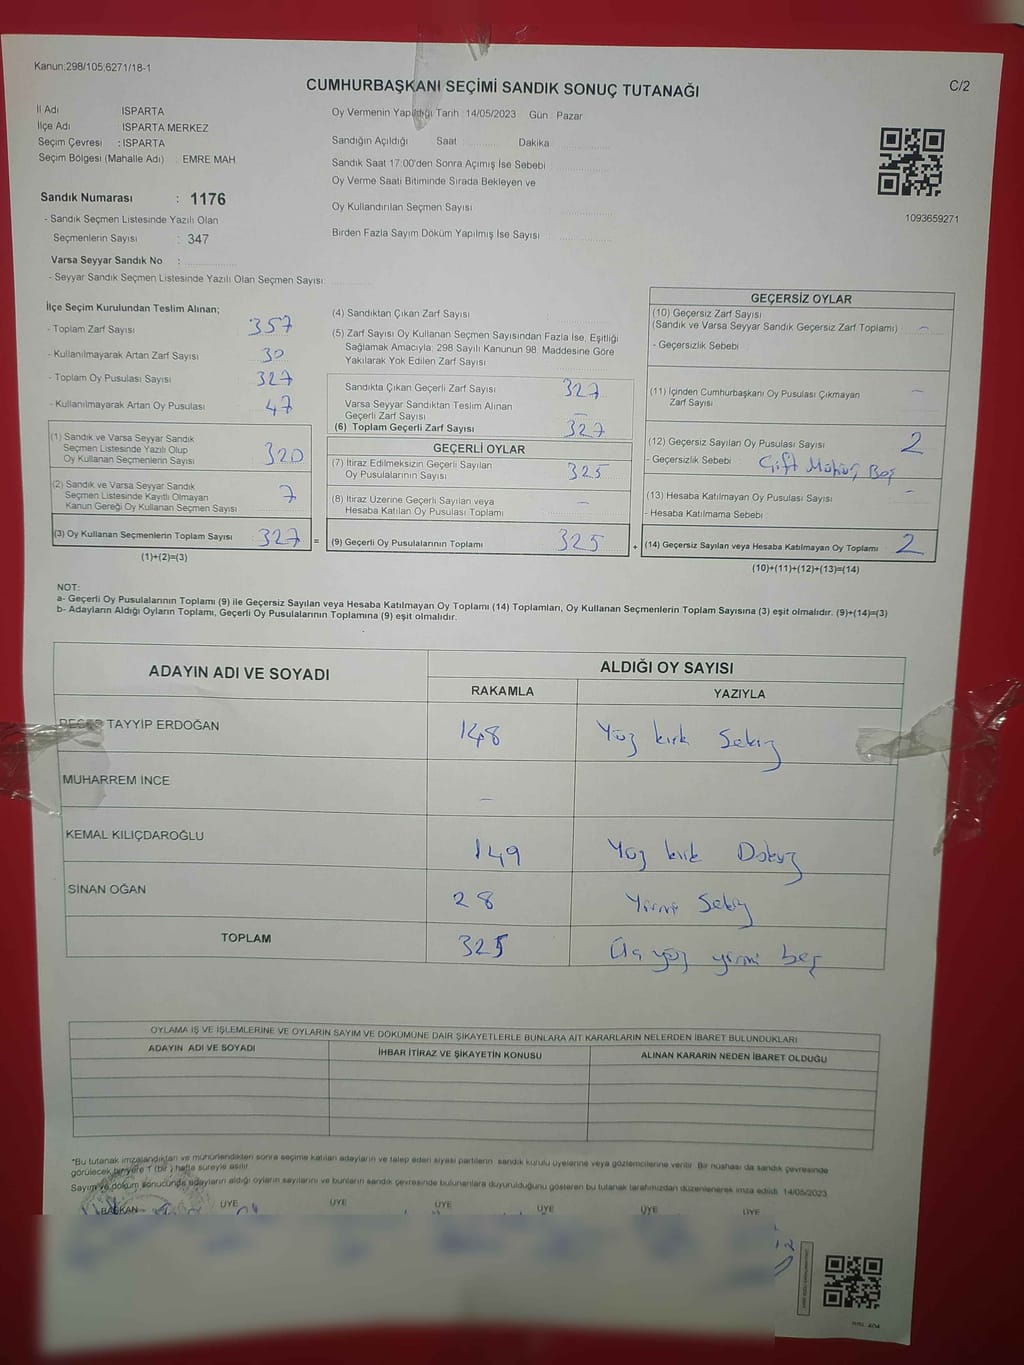 Kanun:298/105;6271/18-1
C/2
CUMHURBAŞKANI SEÇİMİ SANDIK SONUÇ TUTANAĞI
İl Adı ISPARTA
İlçe Adı ISPARTA MERKEZ
Seçim Çevresi : ISPARTA
Seçim Bölgesi (Mahalle Adı) : EMRE MAH
Sandık Numarası : 1176
- Sandık Seçmen Listesinde Yazılı Olan
Seçmenlerin Sayısı : 347
Varsa Seyyar Sandık No :
- Seyyar Sandık Seçmen Listesinde Yazılı Olan Seçmen Sayısı:
Oy Vermenin Yapıldığı Tarih : 14/05/2023 Gün : Pazar
Sandığın Açıldığı Saat Dakika
Sandık Saat 17:00'den Sonra Açımış İse Sebebi
Oy Verme Saati Bitiminde Sırada Bekleyen ve
Oy Kullandırılan Seçmen Sayısı
Birden Fazla Sayım Döküm Yapılmış İse Sayısı
1093659271
İlçe Seçim Kurulundan Teslim Alınan;
- Toplam Zarf Sayısı 357
- Kullanılmayarak Artan Zarf Sayısı 30
- Toplam Oy Pusulası Sayısı 327
- Kullanılmayarak Artan Oy Pusulası 47
(1) Sandık ve Varsa Seyyar Sandık
Seçmen Listesinde Yazılı Olup
Oy Kullanan Seçmenlerin Sayısı 320
(2) Sandık ve Varsa Seyyar Sandık
Seçmen Listesinde Kayıtlı Olmayan
Kanun Gereği Oy Kullanan Seçmen Sayısı 7
(3) Oy Kullanan Seçmenlerin Toplam Sayısı 327 =
(1)+(2)=(3)
(4) Sandıktan Çıkan Zarf Sayısı
(5) Zarf Sayısı Oy Kullanan Seçmen Sayısından Fazla İse, Eşitliği
Sağlamak Amacıyla; 298 Sayılı Kanunun 98. Maddesine Göre
Yakılarak Yok Edilen Zarf Sayısı
Sandıkta Çıkan Geçerli Zarf Sayısı 327
Varsa Seyyar Sandıktan Teslim Alınan
Geçerli Zarf Sayısı –
(6) Toplam Geçerli Zarf Sayısı 327
GEÇERLİ OYLAR
(7) İtiraz Edilmeksizin Geçerli Sayılan
Oy Pusulalarının Sayısı 325
(8) İtiraz Üzerine Geçerli Sayılan veya
Hesaba Katılan Oy Pusulası Toplamı –
(9) Geçerli Oy Pusulalarının Toplamı 325 +
GEÇERSİZ OYLAR
(10) Geçersiz Zarf Sayısı
(Sandık ve Varsa Seyyar Sandık Geçersiz Zarf Toplamı) –
- Geçersizlik Sebebi :
(11) İçinden Cumhurbaşkanı Oy Pusulası Çıkmayan
Zarf Sayısı –
(12) Geçersiz Sayılan Oy Pusulası Sayısı 2
- Geçersizlik Sebebi : Çift Mühür, Boş
(13) Hesaba Katılmayan Oy Pusulası Sayısı –
- Hesaba Katılmama Sebebi
(14) Geçersiz Sayılan veya Hesaba Katılmayan Oy Toplamı 2
(10)+(11)+(12)+(13)=(14)
NOT:
a- Geçerli Oy Pusulalarının Toplamı (9) ile Geçersiz Sayılan veya Hesaba Katılmayan Oy Toplamı (14) Toplamları, Oy Kullanan Seçmenlerin Toplam Sayısına (3) eşit olmalıdır. (9)+(14)=(3)
b- Adayların Aldığı Oyların Toplamı, Geçerli Oy Pusulalarının Toplamına (9) eşit olmalıdır.
ADAYIN ADI VE SOYADI ALDIĞI OY SAYISI
RAKAMLA YAZIYLA
RECEP TAYYİP ERDOĞAN 148 Yüz kırk Sekiz
MUHARREM İNCE –
KEMAL KILIÇDAROĞLU 149 Yüz kırk Dokuz
SİNAN OĞAN 28 Yirmi Sekiz
TOPLAM 325 Üç yüz yirmi beş
OYLAMA İŞ VE İŞLEMLERİNE VE OYLARIN SAYIM VE DÖKÜMÜNE DAİR ŞİKAYETLERLE BUNLARA AİT KARARLARIN NELERDEN İBARET BULUNDUKLARI
ADAYIN ADI VE SOYADI İHBAR İTİRAZ VE ŞİKAYETİN KONUSU ALINAN KARARIN NEDEN İBARET OLDUĞU
*Bu tutanak imzalandıktan ve mühürlendikten sonra seçime katılan adayların ve talep eden siyasi partilerin sandık kurulu üyelerine veya gözlemcilerine verilir. Bir nüshası da sandık çevresinde
görülecek bir yere 1 (bir) hafta süreyle asılır.
Sayım ve döküm sonucunda adayların aldığı oyların sayılarını ve bunların sandık çevresinde bulunanlara duyurulduğunu gösteren bu tutanak tarafımızdan düzenlenerek imza edildi. 14/05/2023
BAŞKAN ÜYE ÜYE ÜYE ÜYE ÜYE ÜYE